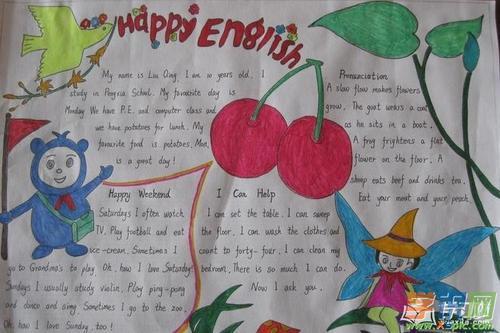 Happy English
My name is Liu Qing. I am 10 years old. I
study in Pengxia School. My favourite day is
Monday. We have P.E. and computer class and
we have potatoes for lunch. My
favourite food is potatoes. Mon.
is a great day!
Pronunciation
A slow flow makes flowers
grow. The goat wears a coat
as he sits in a boat.
A frog frightens a flat
flower on the floor. A
sheep eats beef and drinks tea.
Eat your meat and your peach.
Happy Weekend
Saturdays I often watch
TV. Play football and eat
ice-cream. Sometimes I
go to Grandma's to play. Oh. hao I love Saturday!
Sundays I usually study violin. Play ping-pong
and dance and aimp. Sometimes I go to the zoo.
Oh. hao I love Sunday too!
I Can Help
I can set the table. I can sweep
the floor. I can wash the clothes and
count to forty-four. I can clean my
bedroom. There is so much I can do.
Now I ask you.
www.xspic.com